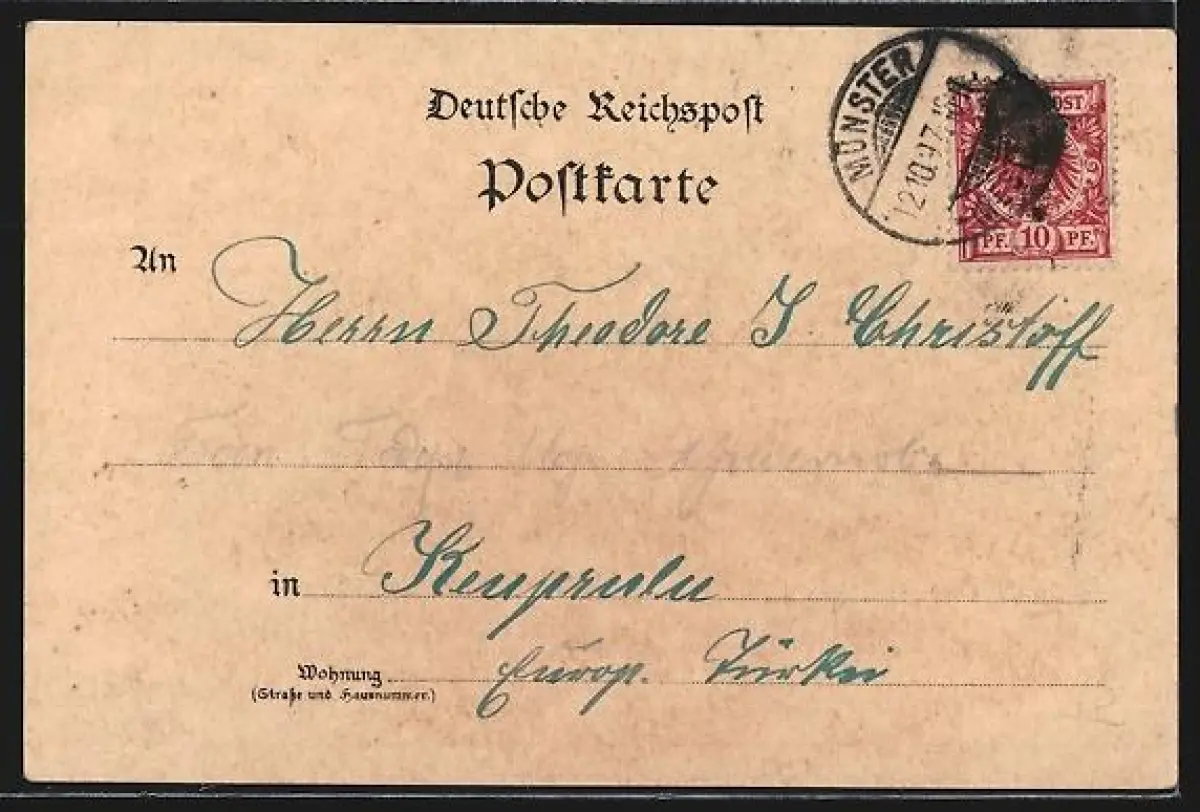 Deutsche Reichspost
Postkarte
MÜNSTER
12.10.97
POST
PF. 10 PF.
An Herrn Theodore J. Christoff
in Keuprulu
Wohnung Europ. Türkei
(Straße und Hausnummer.)